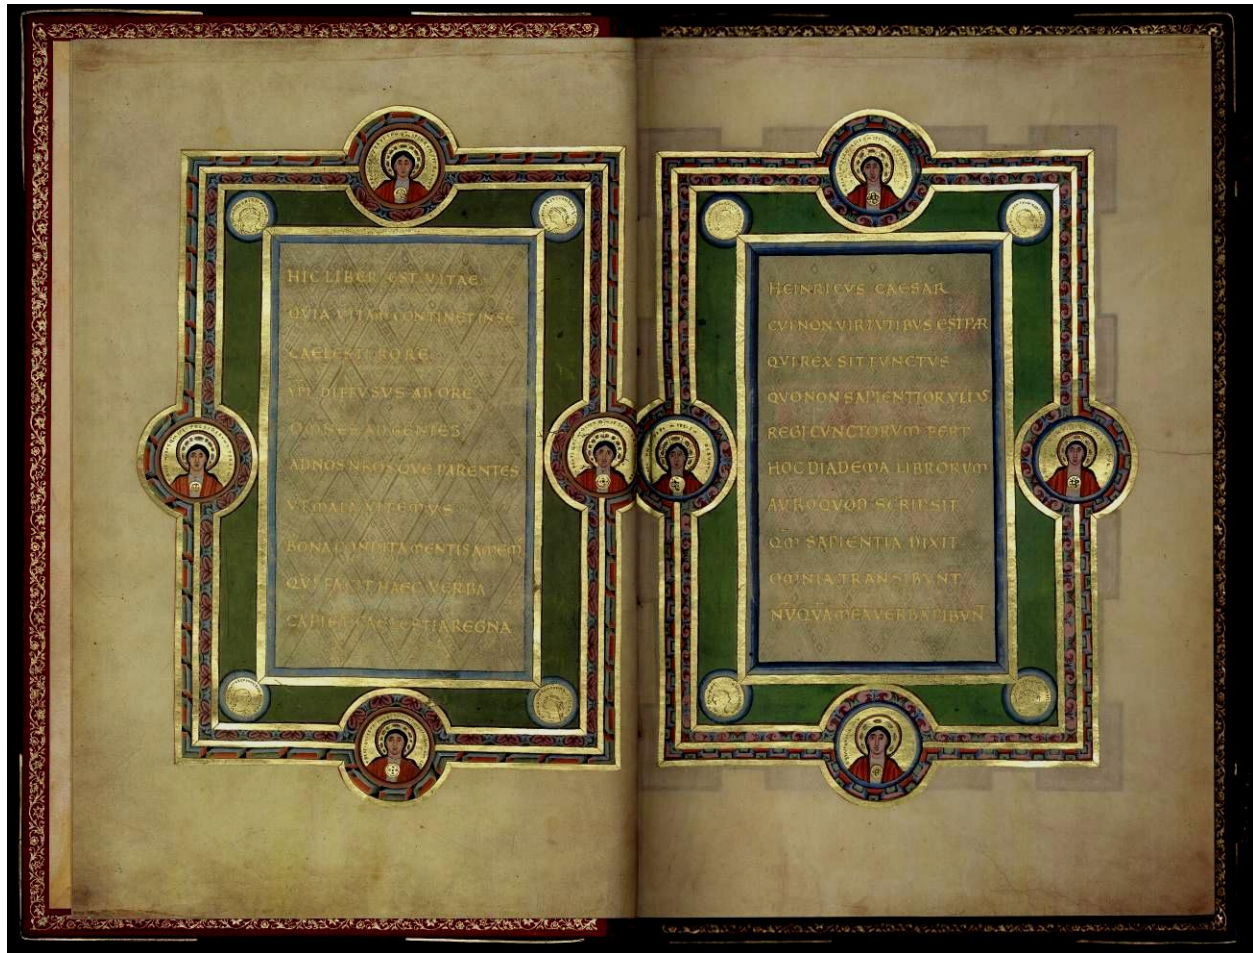 HIC LIBER EST VITAE
QVIA VITAM CONTINET IN SE
CAELESTI RORE
XPI DIFFVSVS AB ORE
OMNES AD GENTES
AD NOS NROSQVE PARENTES
VT MALA VITEMVS
BONA MENTIS
QVI FACIT HAEC VERBA
CAPIET CAELESTIA REGNA
HEINRICVS CAESAR
CVI NON VIRTVTIBVS EST PAR
QVI REX SIT FVNCTVS
QVO NON SAPIENTIOR VLLVS
REGI CVNCTORVM FERT
HOC DIADEMA LIBRORVM
AVRO QVOD SCRIPSIT
QM̄ SAPIENTIA DIXIT
OMNIA TRANSIBVNT
NV̄QVĀ MEA VERBA PIBVN̄T